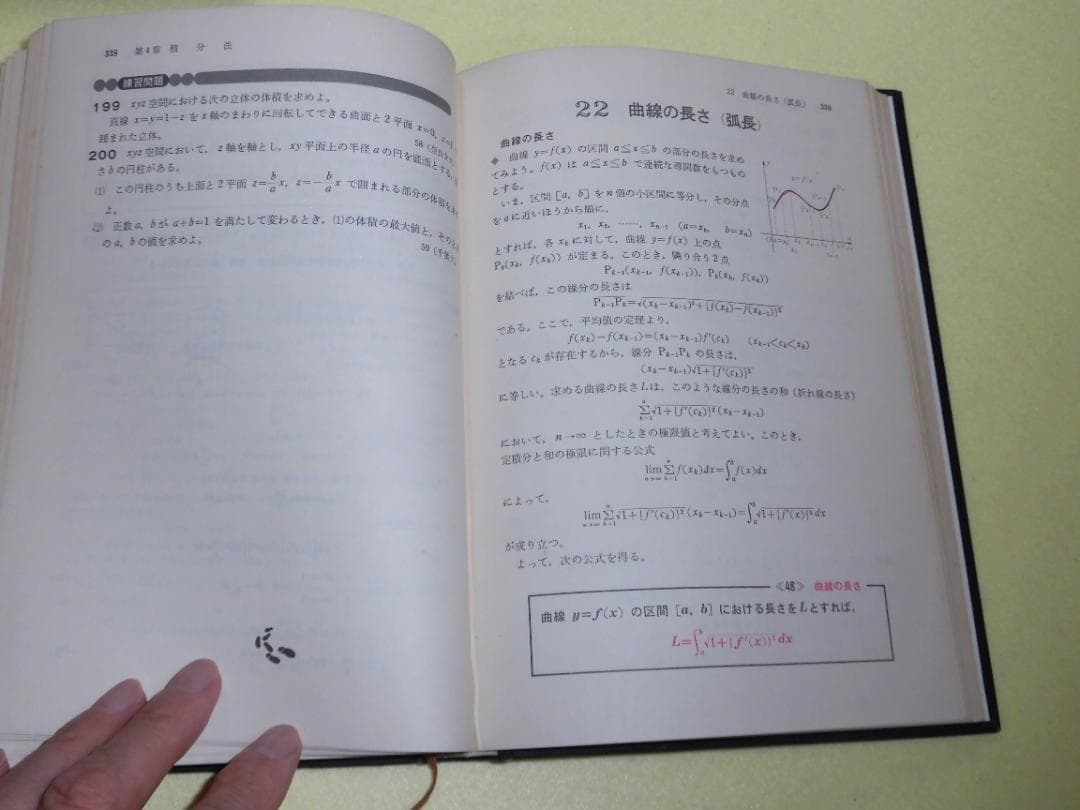 338 第4章 積分法
練習問題
199 xyz空間における次の立体の体積を求めよ。
直線 x=y=1−z を x 軸のまわりに回転してできる曲面と2平面 x=0, x=1
囲まれた立体。
58
200 xyz空間において, z軸を軸とし, xy平面上の半径 a の円を底面とする,
さ b の円柱がある。
(1) この円柱のうち上面と2平面 z=b/a x, z=−b/a x で囲まれる部分の体積を
よ。
(2) 正数 a, b が a+b=1 を満たして変わるとき, (1)の体積の最大値と, そのとき
の a, b の値を求めよ。
59
22 曲線の長さ(弧長) 339
22 曲線の長さ(弧長)
曲線の長さ
◆ 曲線 y=f(x) の区間 a≦x≦b の部分の長さを求め
てみよう。f(x) は a≦x≦b で連続な導関数をもつもの
とする。
いま, 区間 [a, b] を n 個の小区間に等分し, その分点
を a に近いほうから順に,
x₁, x₂, ……, xₙ₋₁ (a=x₀, b=xₙ)
とすれば, 各 xₖ に対して, 曲線 y=f(x) 上の点
Pₖ(xₖ, f(xₖ)) が定まる。このとき, 隣り合う2点
Pₖ₋₁(xₖ₋₁, f(xₖ₋₁)), Pₖ(xₖ, f(xₖ))
を結べば, この線分の長さは
Pₖ₋₁Pₖ=√(xₖ−xₖ₋₁)²+{f(xₖ)−f(xₖ₋₁)}²
である。ここで, 平均値の定理より,
f(xₖ)−f(xₖ₋₁)=(xₖ−xₖ₋₁)f'(cₖ) (xₖ₋₁<cₖ<xₖ)
となる cₖ が存在するから, 線分 Pₖ₋₁Pₖ の長さは,
(xₖ−xₖ₋₁)√1+{f'(cₖ)}²
に等しい。求める曲線の長さ L は, このような線分の長さの和(折れ線の長さ)
∑ₖ₌₁ⁿ√1+{f'(cₖ)}²(xₖ−xₖ₋₁)
において, n→∞ としたときの極限値と考えてよい。このとき,
定積分と和の極限に関する公式
lim n→∞ ∑ₖ₌₁ⁿ f(xₖ)dx=∫ₐᵇ f(x)dx
によって,
lim n→∞ ∑ₖ₌₁ⁿ√1+{f'(cₖ)}²(xₖ−xₖ₋₁)=∫ₐᵇ√1+{f'(x)}²dx
が成り立つ。
よって, 次の公式を得る。
《48》 曲線の長さ
曲線 y=f(x) の区間 [a, b] における長さを L とすれば,
L=∫ₐᵇ√1+{f'(x)}²dx